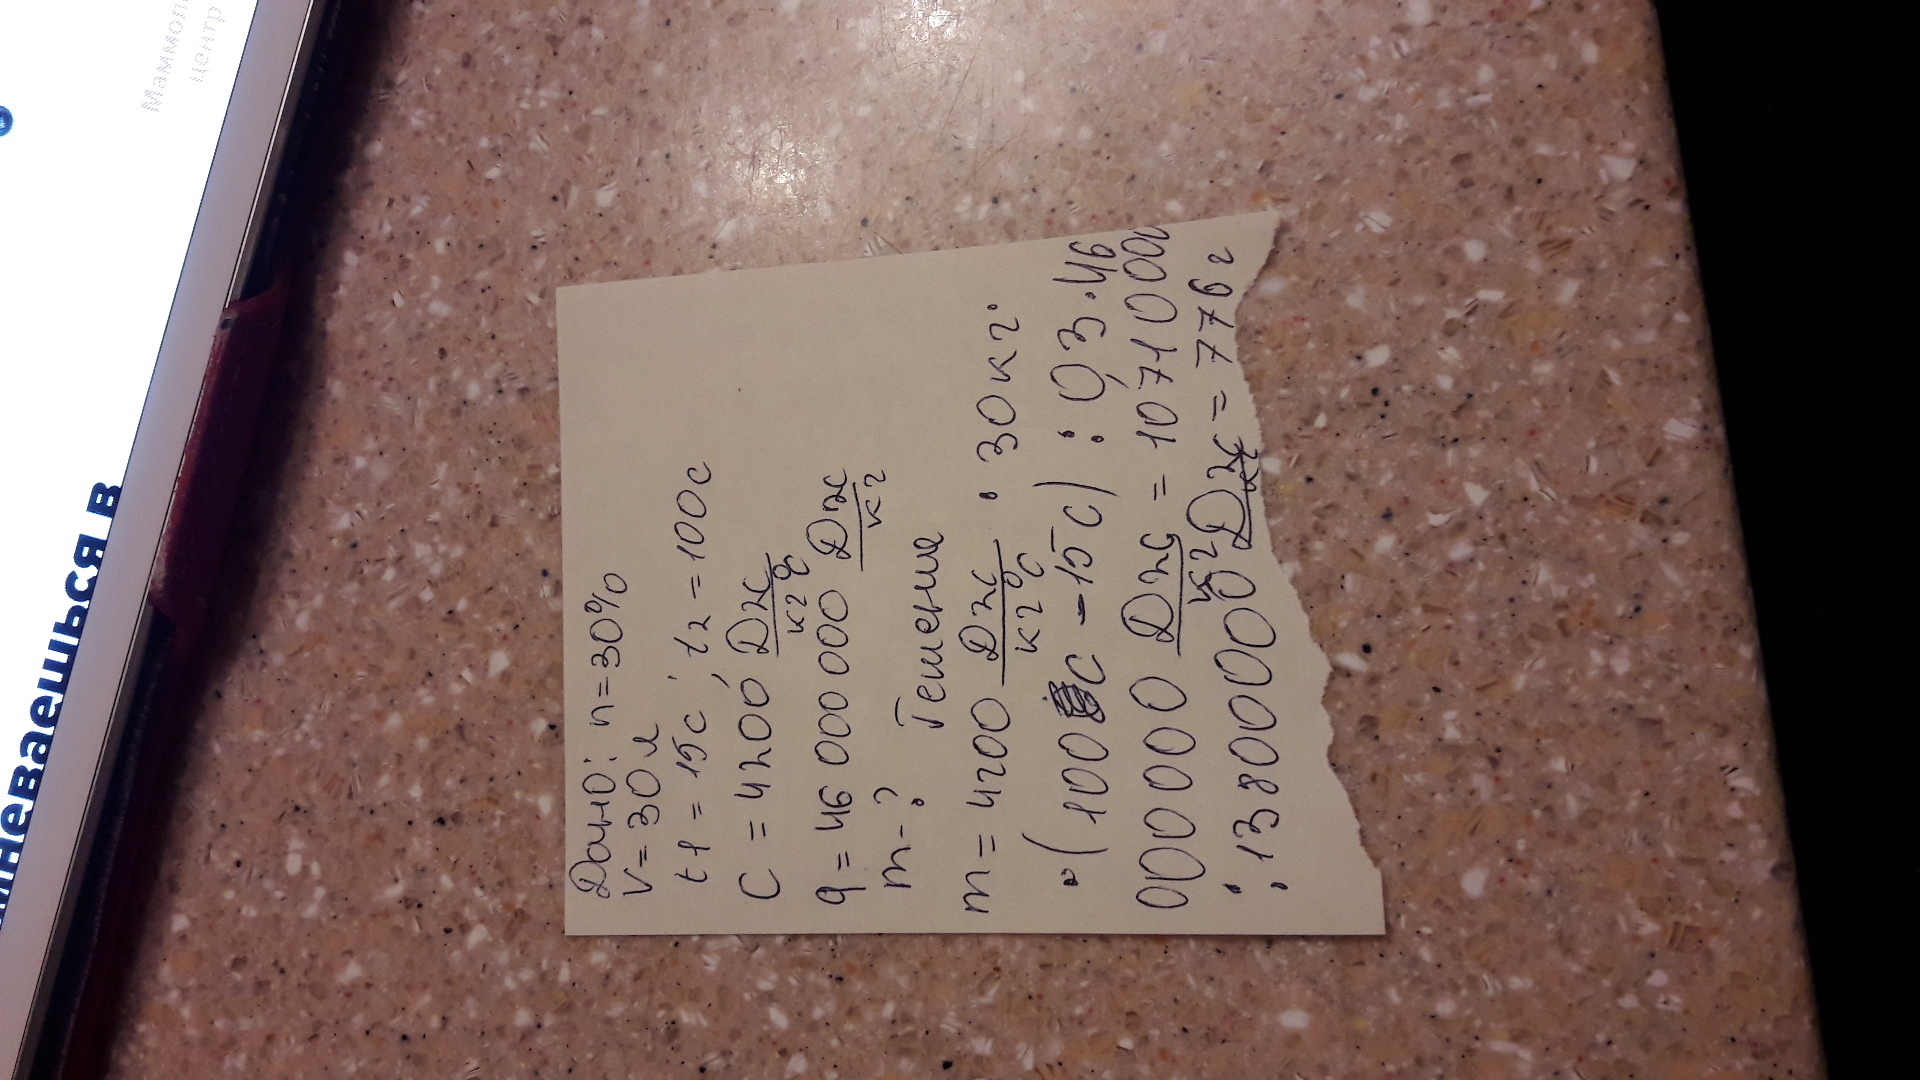 мневаешься в
центр
Дано: n=30%
V=30л
t1=15c; t2=100c
C=4200 Дж
кг°C
q=46 000 000 Дж
кг
m-?
Решение
m=4200 Дж · 30кг·
кг°C
·(100 C-15C) : 0,3·46
000000 Дж = 10710000
кг
: 13800000 Дж = 776г
кг